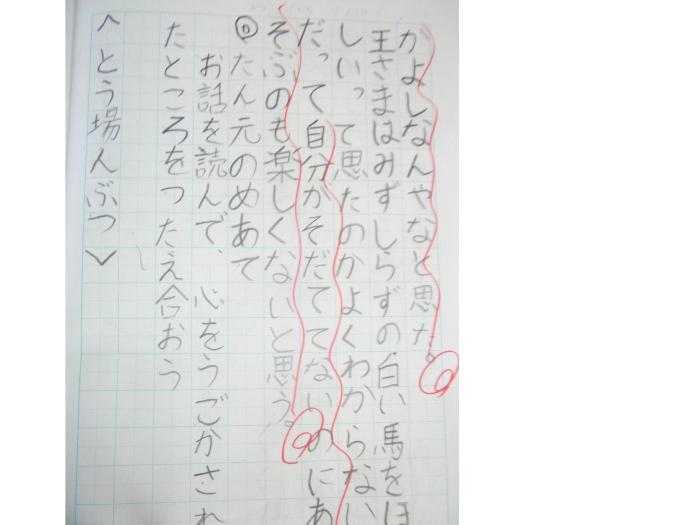 かよしなんやなと思た。
王さまはみずしらずの白い馬をほ
しいって思たのかよくわからない
だって自分がそだててないのにあ
そぶのも楽しくないと思う。
◎たん元のめあて
お話を読んで、心をうごかされ
たところをつたえ合おう
＜とう場人ぶつ＞